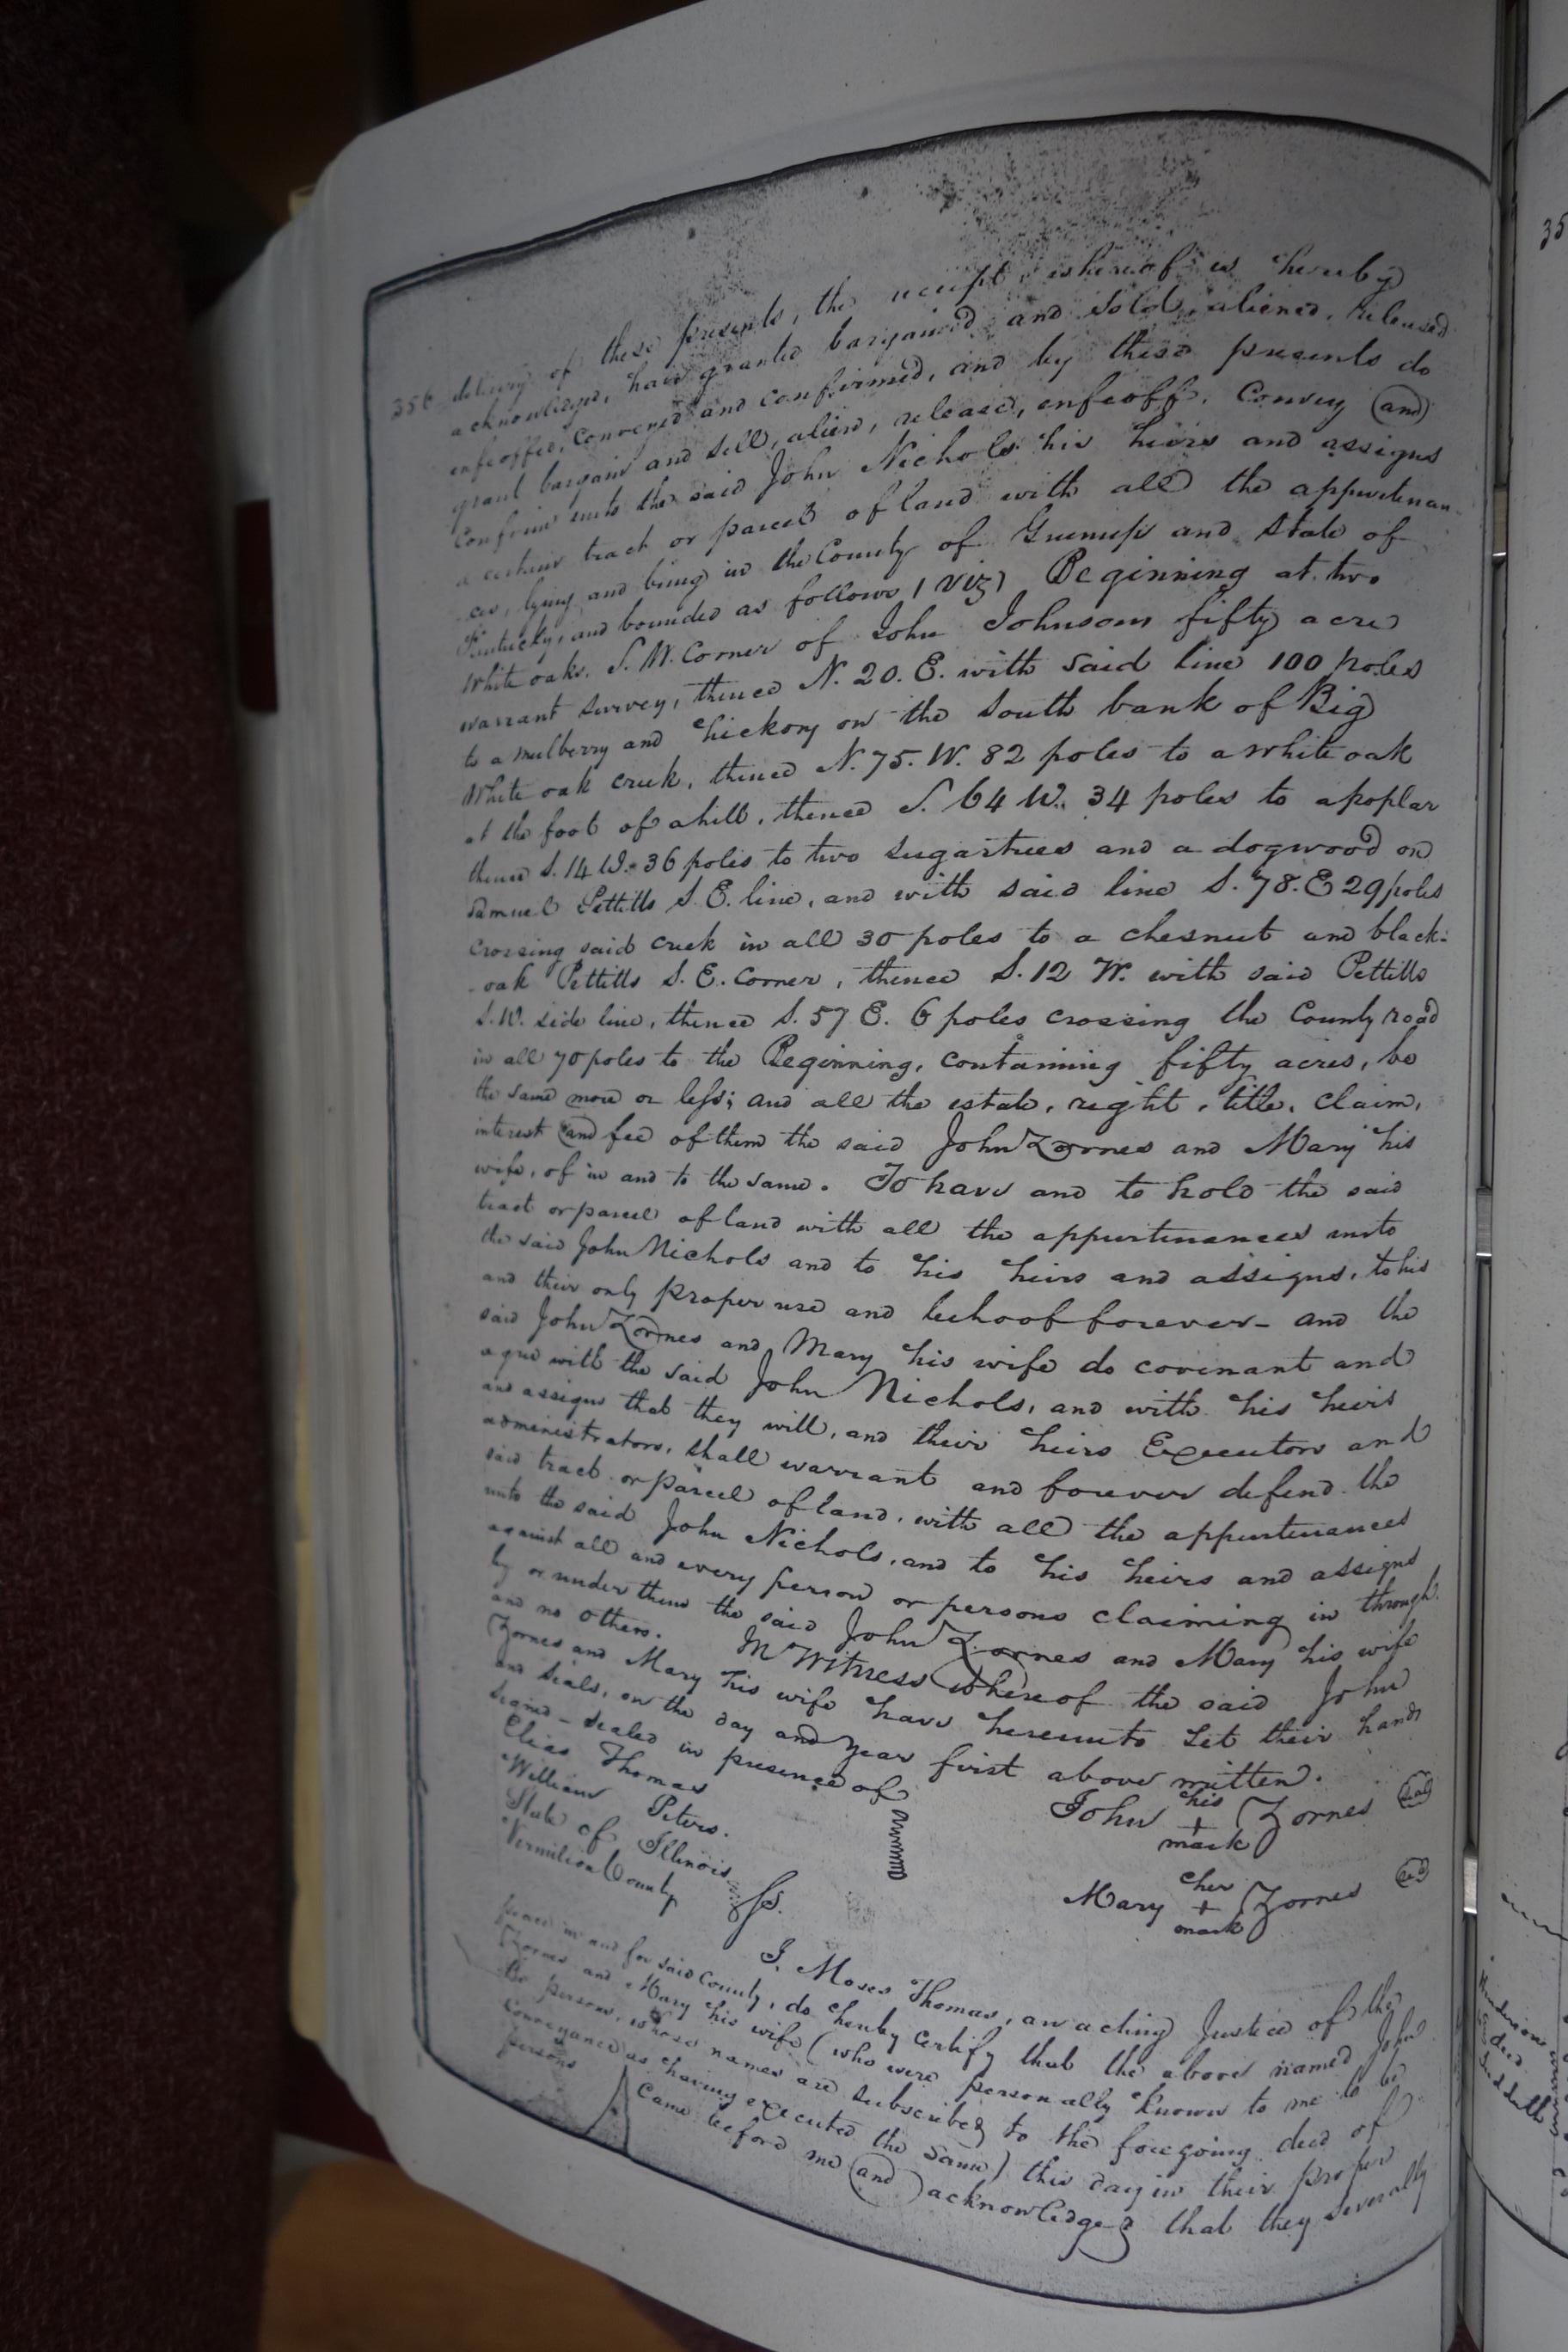 356 delivery of these presents, the receipt whereof is hereby
acknowledged, have granted bargained and sold, aliened, released
enfeoffed, conveyed and confirmed, and by these presents do
grant bargain and sell, alien, release, enfeoff, Convey and
Confirm unto the said John Nichols his heirs and assigns
a certain tract or parcel of land with all the appurtenan-
ces, lying and being in the County of Greenup and State of
Kentucky, and bounded as follows (Viz) Beginning at two
White oaks, S. W. Corner of John Johnsons fifty acre
warrant survey, thence N. 20. E. with said line 100 poles
to a mulberry and hickory on the South bank of Big
White oak creek, thence N. 75. W. 82 poles to a white oak
at the foot of a hill, thence S. 64 W. 34 poles to a poplar
thence S. 14 W. 36 poles to two sugartrees and a dogwood on
Samuel Pettitts S. E. line, and with said line S. 78. E 29 poles
crossing said creek in all 30 poles to a chesnut and black-
oak Pettitts S. E. Corner, thence S. 12 W. with said Pettitts
S. W. side line, thence S. 57 E. 6 poles crossing the County road
in all 70 poles to the Beginning, containing fifty acres, be
the same more or less; and all the estate, right, title, claim,
interest and fee of them the said John Zornes and Mary his
wife, of in and to the same. To have and to hold the said
tract or parcel of land with all the appurtenances unto
the said John Nichols and to his heirs and assigns, to his
and their only proper use and behoof forever - and the
said John Zornes and Mary his wife do covenant and
agree with the said John Nichols, and with his heirs
and assigns that they will, and their heirs Executors and
administrators, shall warrant and forever defend the
said tract or parcel of land, with all the appurtenances
unto the said John Nichols, and to his heirs and assigns
against all and every person or persons claiming in through
by or under them the said John Zornes and Mary his wife
and no others. In Witness whereof the said John
Zornes and Mary his wife have hereunto Set their hands
and seals, on the day and year first above written.
Signed - Sealed in presence of
Elias Thomas
William Peters.
John his + mark Zornes Seal
Mary her + mark Zornes Seal
State of Illinois
Vermilion County Ss.
I, Moses Thomas, an acting Justice of the
peace in and for said County, do hereby Certify that the above named John
Zornes and Mary his wife (who were personally known to me to be
the persons, whose names are subscribed to the foregoing deed of
Conveyance as having executed the same) this day in their proper
persons came before me and acknowledged that they severally
35